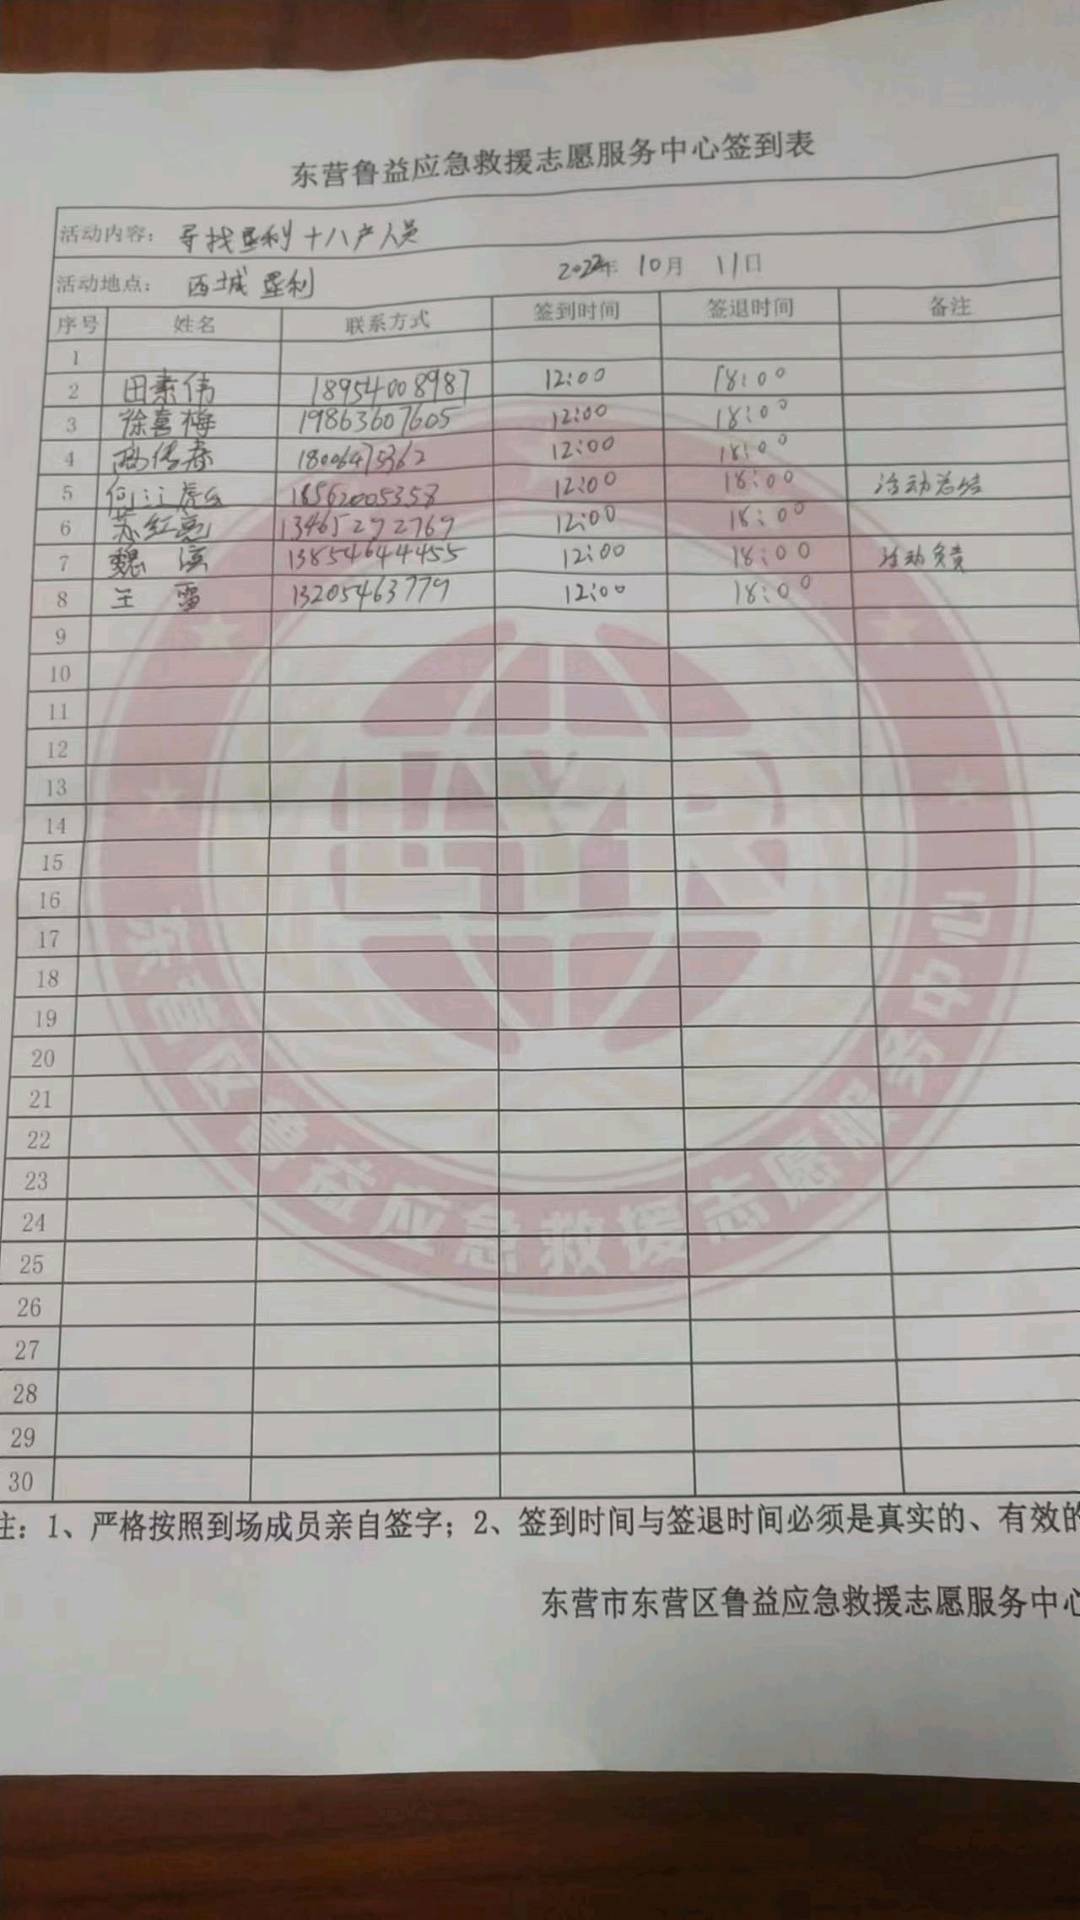 东营鲁益应急救援志愿服务中心签到表
活动内容: 寻找垦利十八户人员
活动地点: 西城 垦利 2022年 10月 11日
序号 姓名 联系方式 签到时间 签退时间 备注
1
2 田素伟 18954008987 12:00 18:00
3 徐喜梅 19863607605 12:00 18:00
4 传春 18006475362 12:00 18:00
5 何 18562005358 12:00 18:00 活动总结
6 苏红亮 13465292769 12:00 18:00
7 魏滨 13854644455 12:00 18:00 活动负责
8 王雪 13205463779 12:00 18:00
9
10
11
12
13
14
15
16
17
18
19
20
21
22
23
24
25
26
27
28
29
30
LYR
东营区鲁益应急救援志愿服务中心
注: 1、严格按照到场成员亲自签字; 2、签到时间与签退时间必须是真实的、有效的
东营市东营区鲁益应急救援志愿服务中心